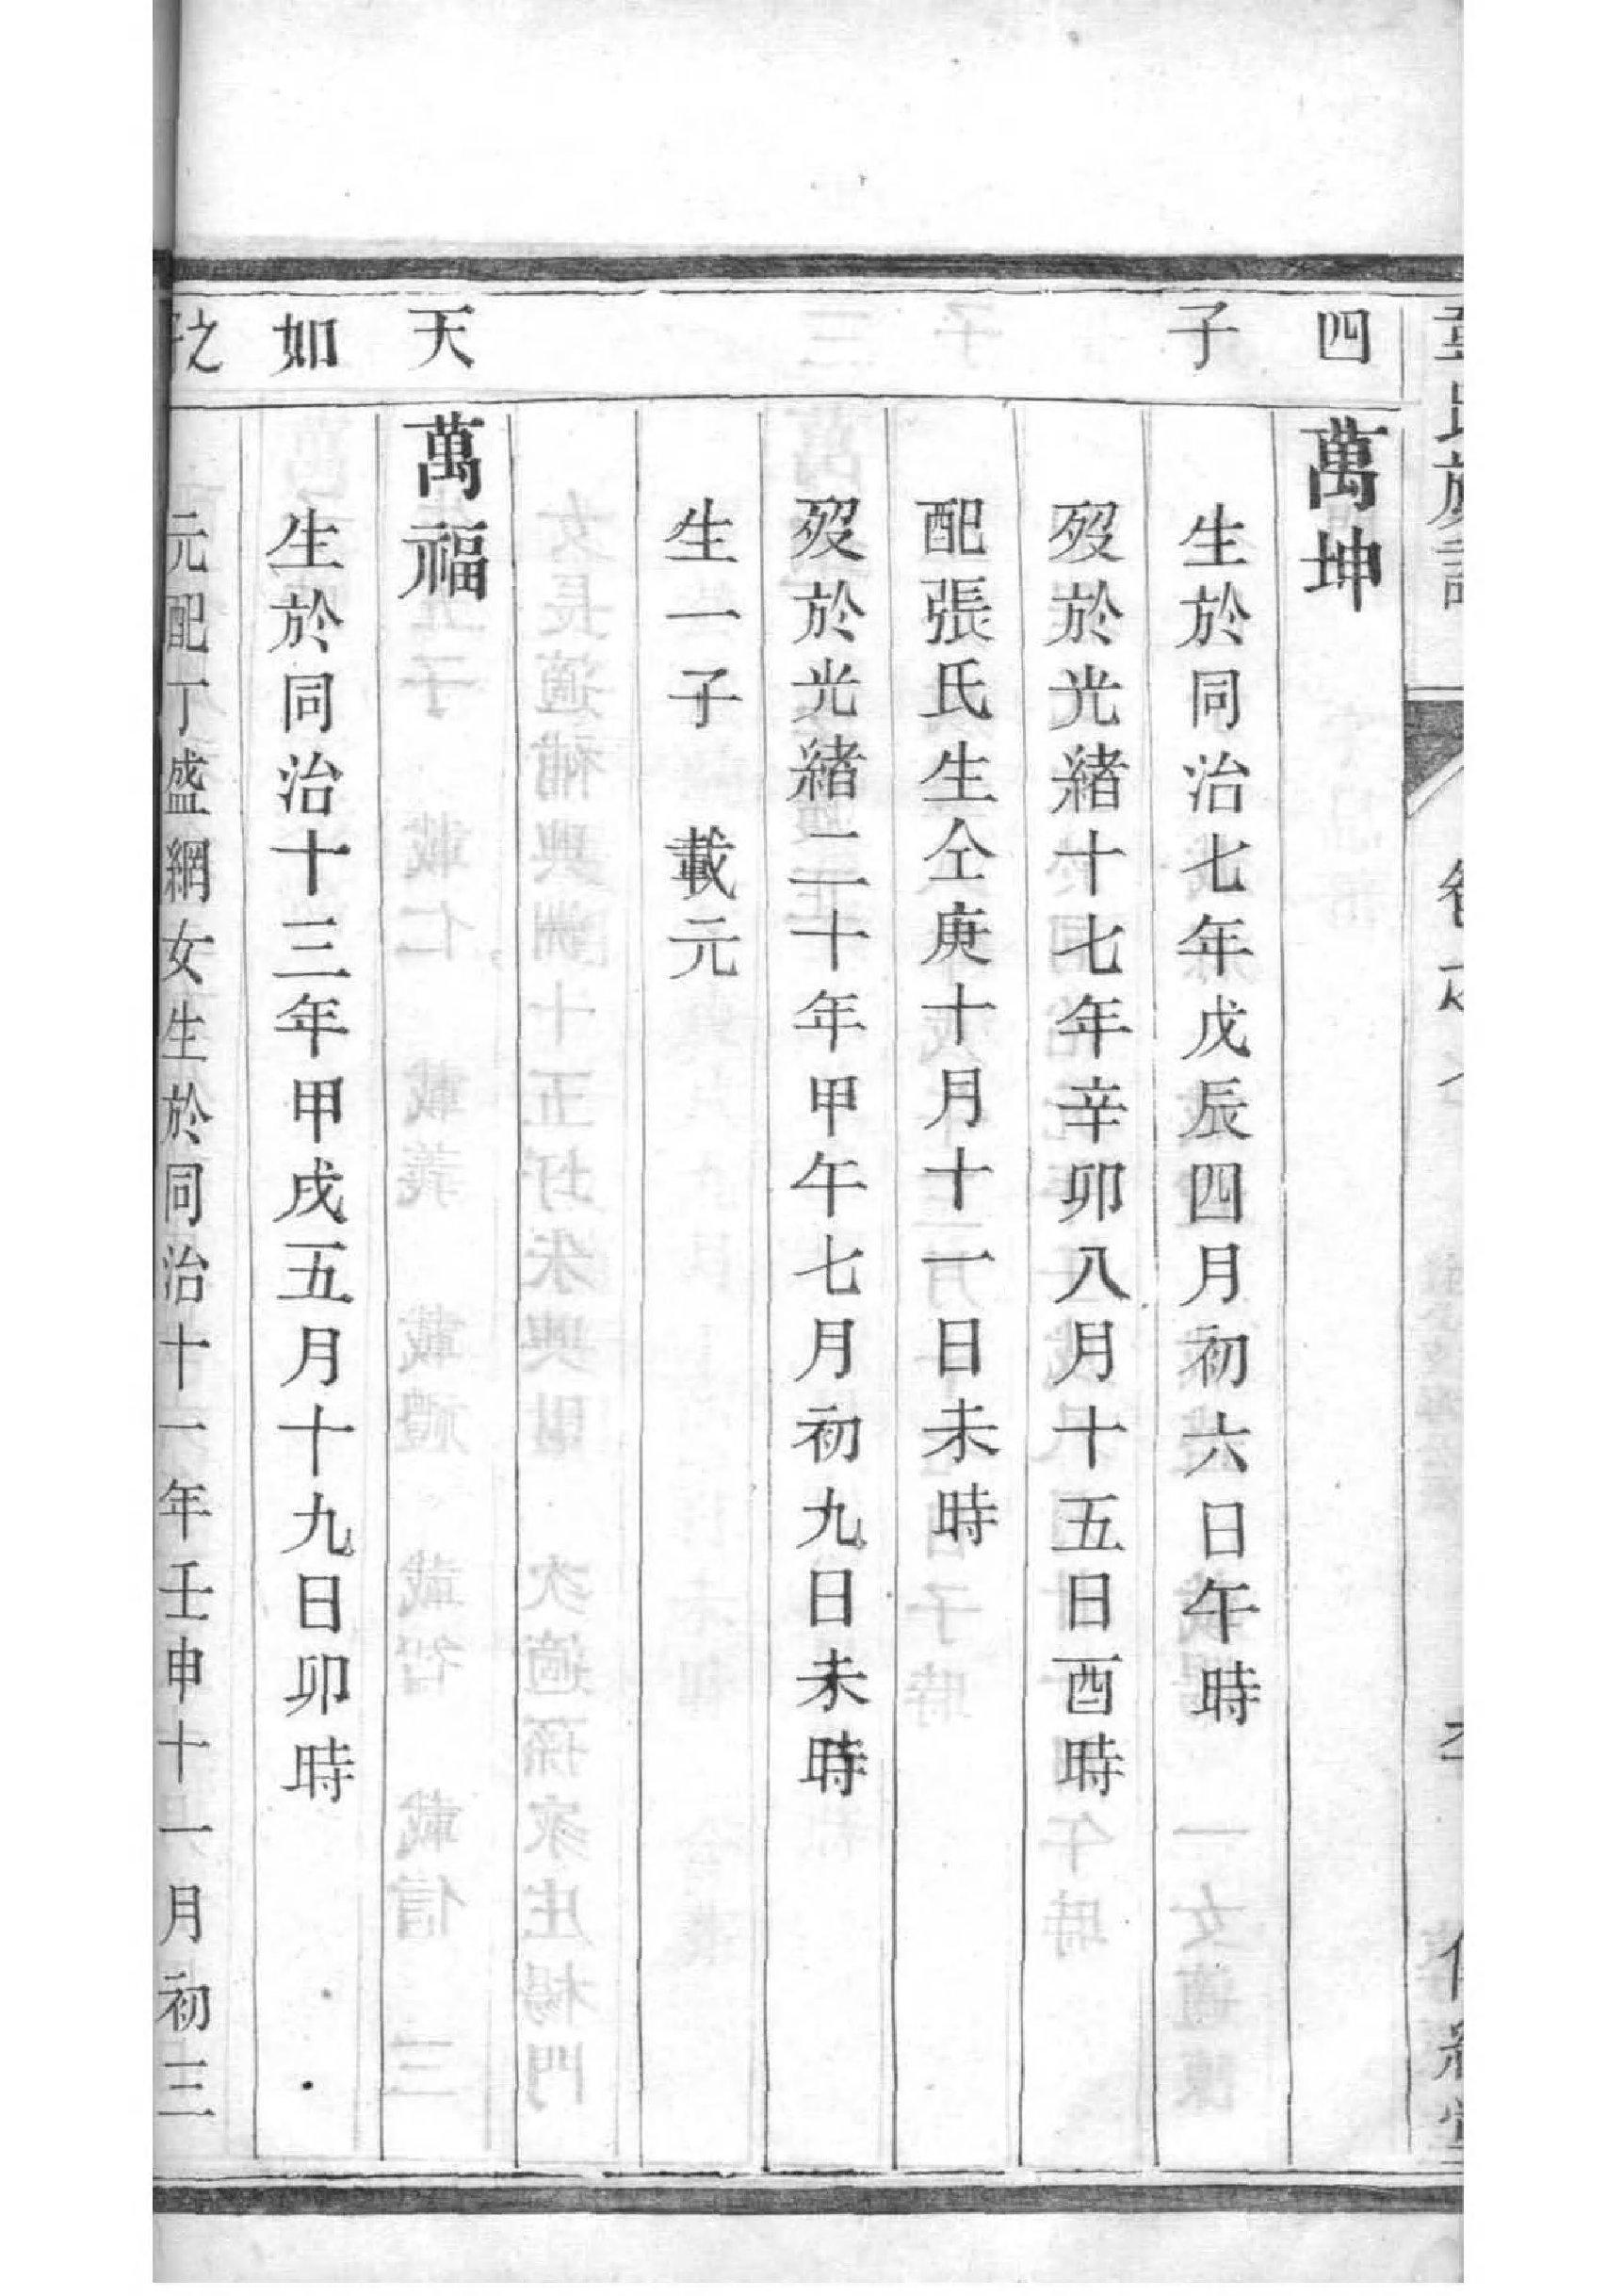 四
子
萬坤
生於同治七年戊辰四月初六日午時
歿於光緒十七年辛卯八月十五日酉時
配張氏生仝庚十月十一日未時
歿於光緒二十年甲午七月初九日未時
生一子 載元
天
如
萬福
生於同治十三年甲戌五月十九日卯時
元配丁盛網女生於同治十一年壬申十一月初三